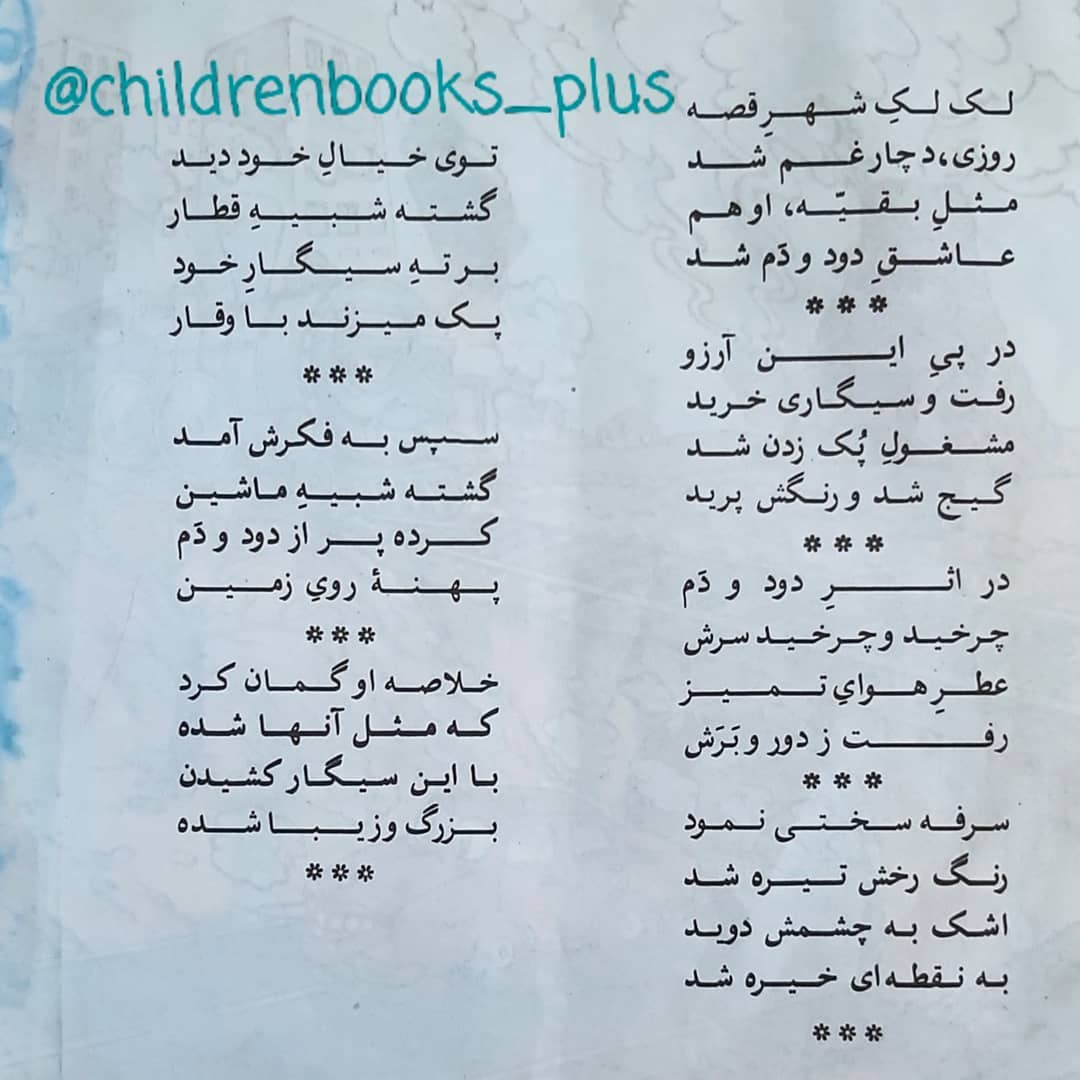 @childrenbooks_plus
لک لکِ شهرِ قصه
روزی، دچار غم شد
مثلِ بقیّه، او هم
عاشقِ دود و دَم شد
***
در پیِ این آرزو
رفت و سیگاری خرید
مشغولِ پُک زدن شد
گیج شد و رنگش پرید
***
در اثرِ دود و دَم
چرخید و چرخید سرش
عطرِ هوایِ تمیز
رفت ز دور و بَرَش
***
سرفه سختی نمود
رنگ رخش تیره شد
اشک به چشمش دوید
به نقطه‌ای خیره شد
***
توی خیالِ خود دید
گشته شبیهِ قطار
بر تهِ سیگارِ خود
پک میزند با وقار
***
سپس به فکرش آمد
گشته شبیهِ ماشین
کرده پر از دود و دَم
پهنهٔ رویِ زمین
***
خلاصه او گمان کرد
که مثل آنها شده
با این سیگار کشیدن
بزرگ و زیبا شده
***